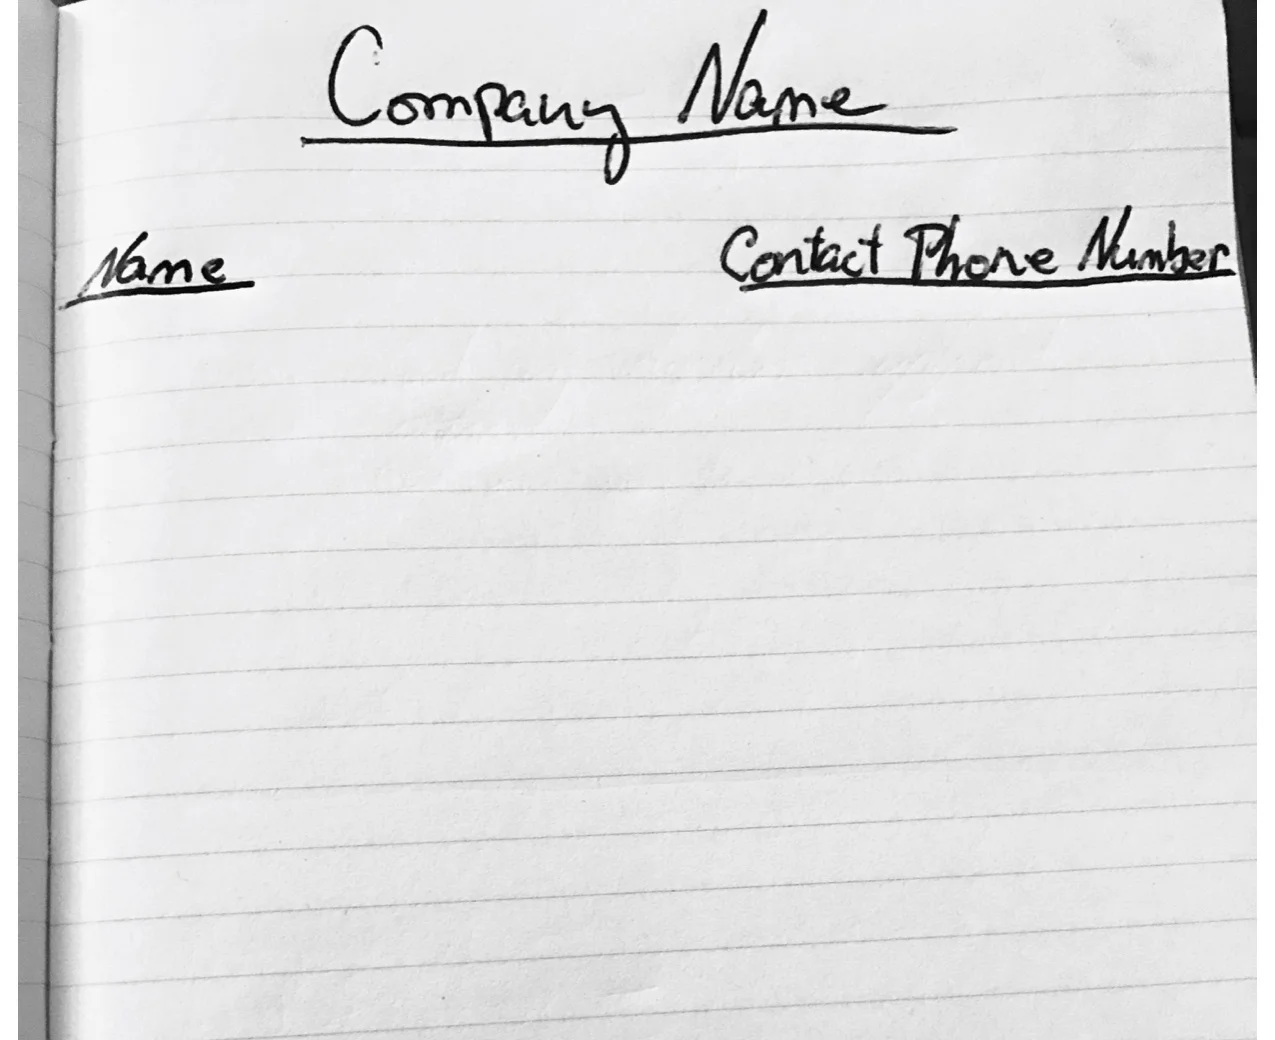 Company Name
Name Contact Phone Number